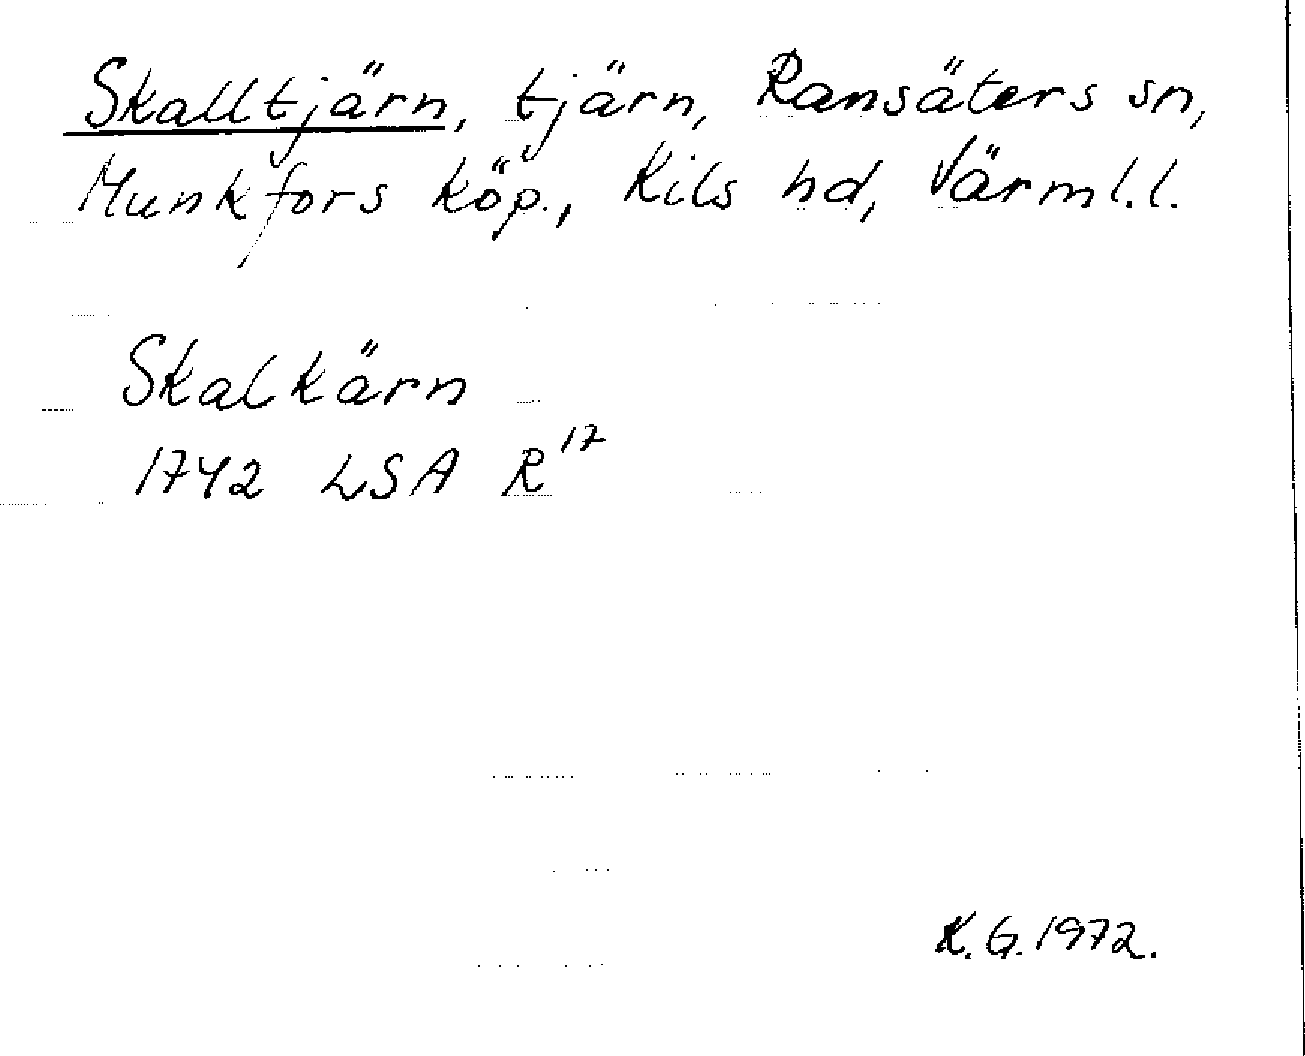 Skalltjärn, tjärn, Ransäters sn,
Munkfors köp., Kils hd, Värml.l.
Skalkärn
1742 LSA R¹⁷
K.G.1972.